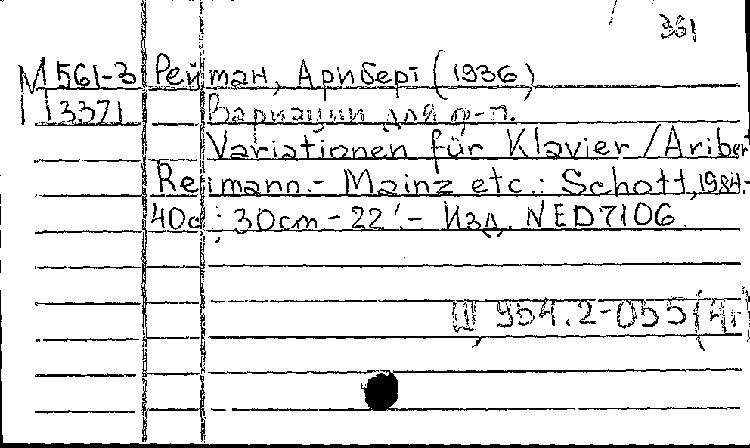 361
М 561-3 Рейман, Ариберт (1936)
13371 Вариации для ф-п.
Variationen für Klavier / Aribert
Reimann.- Mainz etc.: Schott, 1984.-
40с; 30cm - 22'.- Изд. NED7106
Ш 954.2-055(4г)